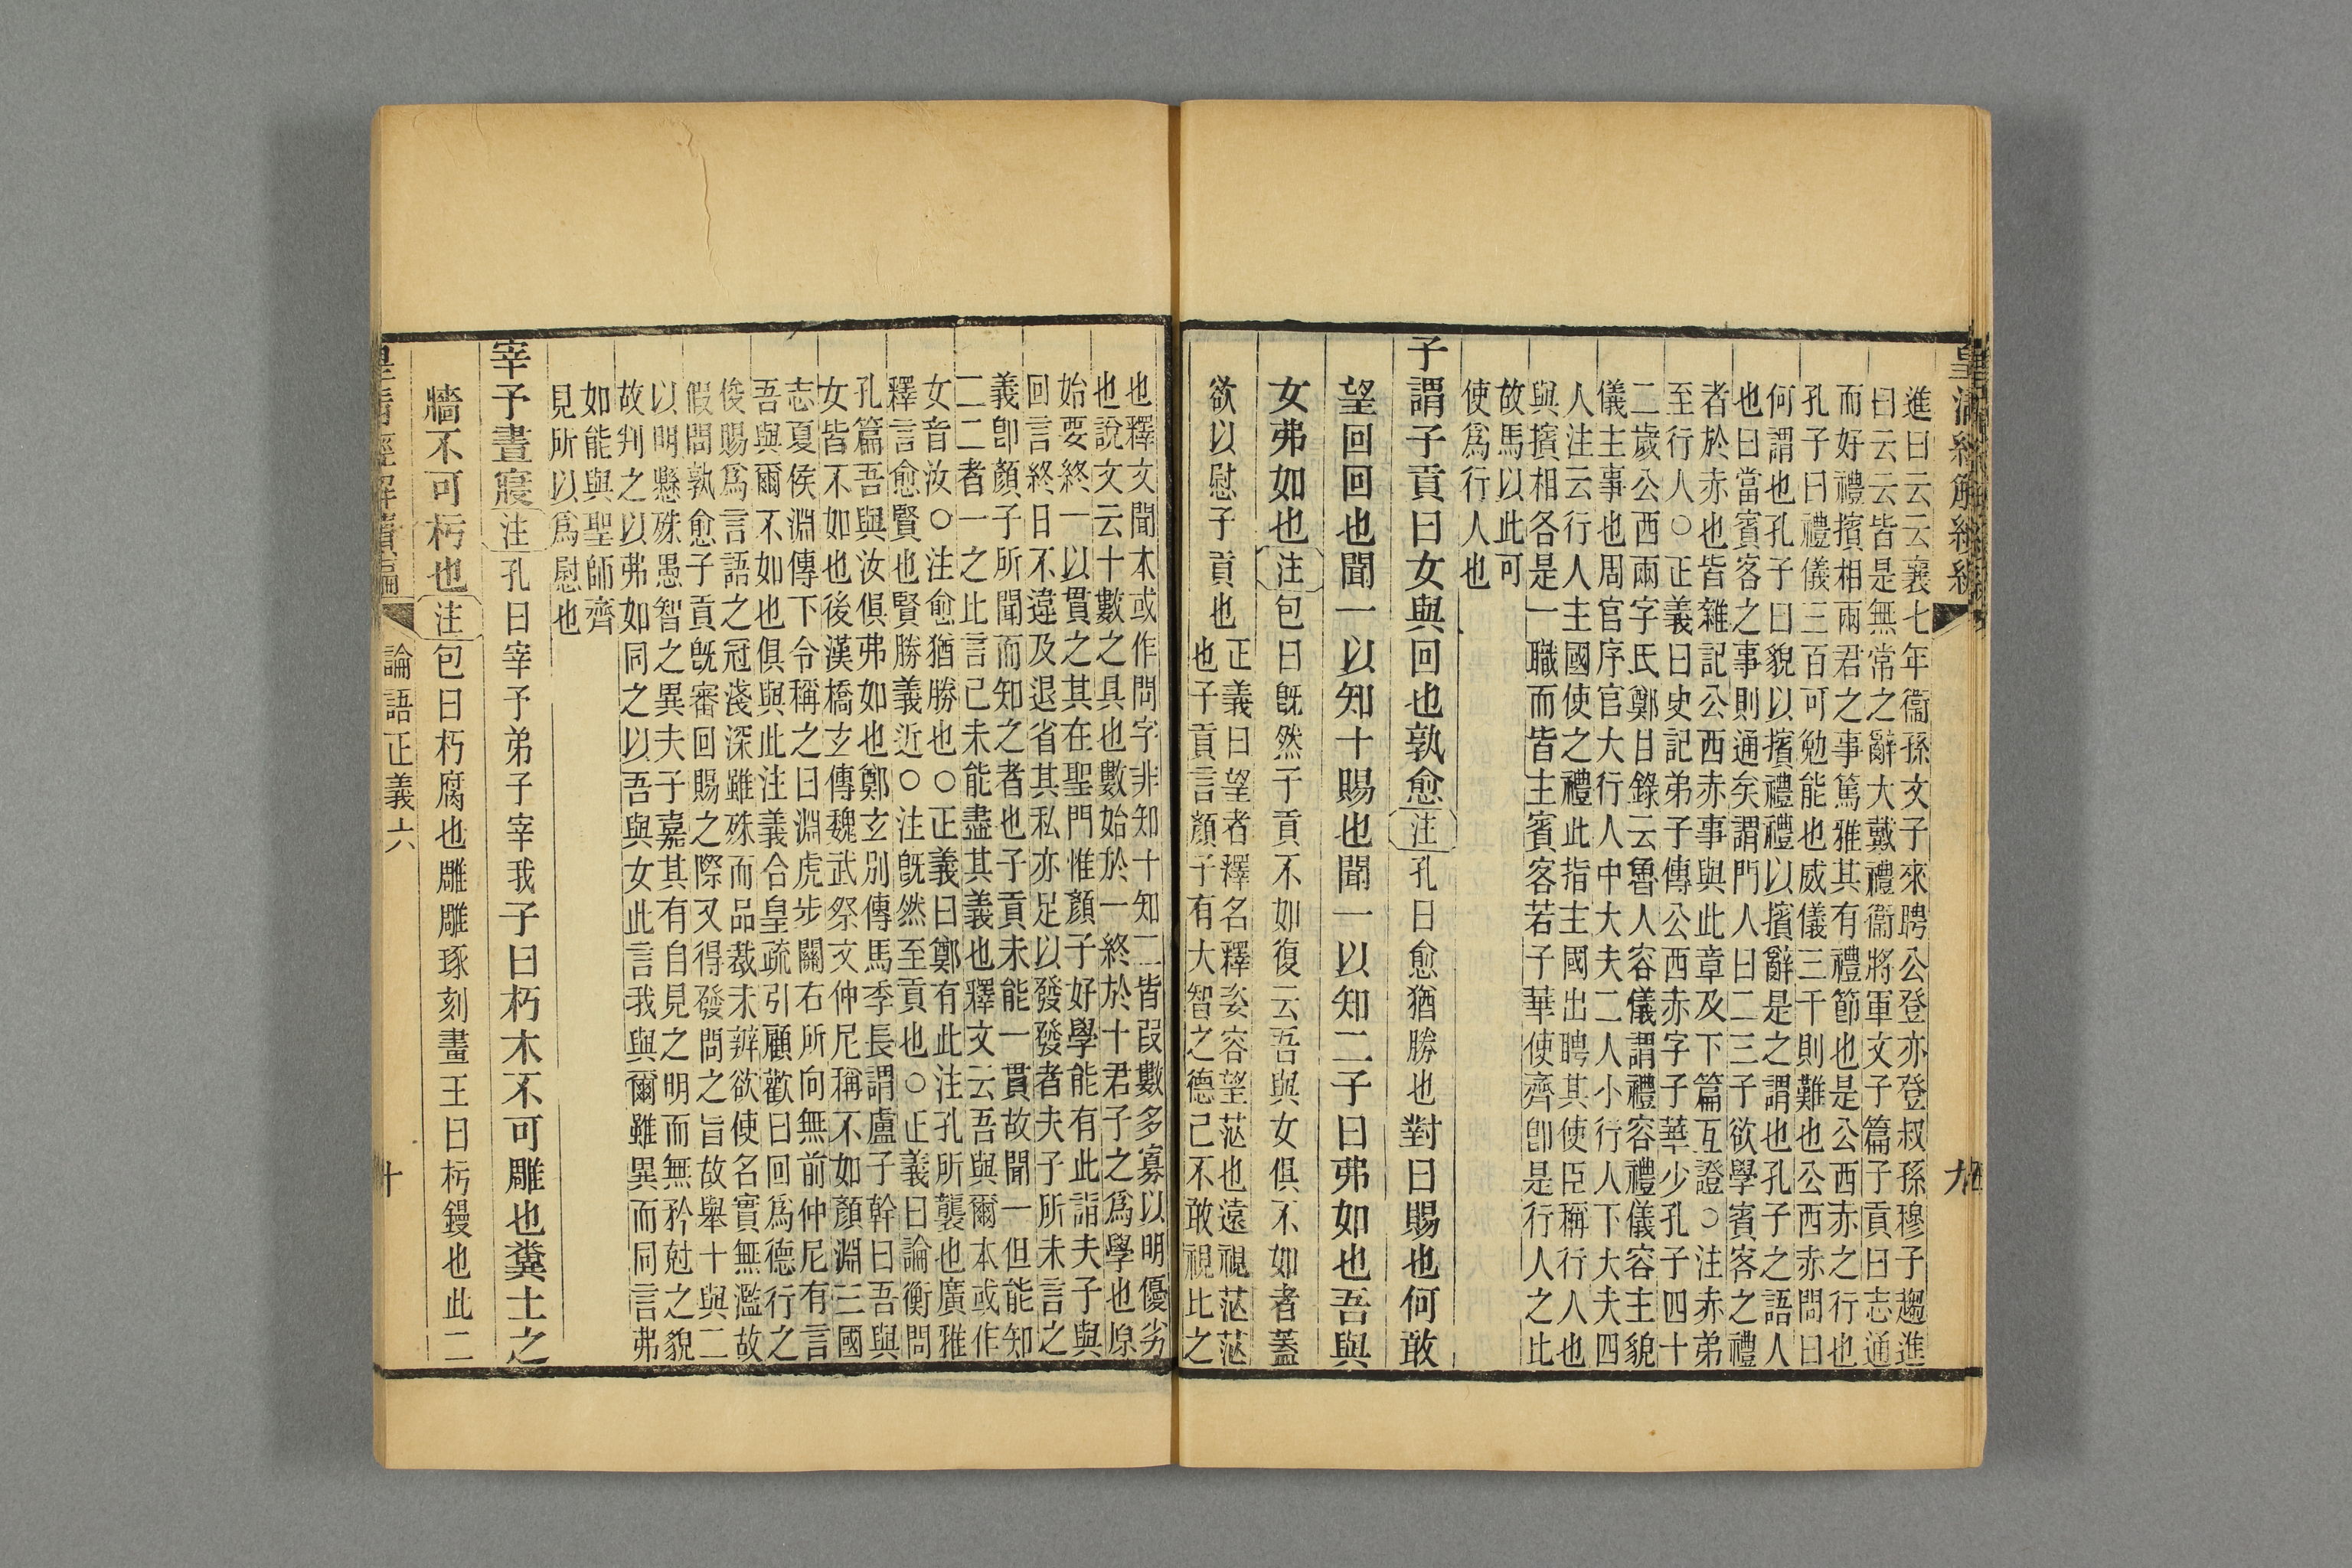 進曰云云襄七年衞孫文子來聘公登亦登叔孫穆子趨進
曰云云皆是無常之辭大戴禮衞將軍文子篇子貢曰志通
而好禮擯相兩君之事篤雅其有禮節也是公西赤之行也
孔子曰禮儀三百可勉能也威儀三千則難也公西赤問曰
何謂也孔子曰貌以擯禮禮以擯辭是之謂也孔子之語人
也曰當賓客之事則通矣謂門人曰二三子欲學賓客之禮
者於赤也皆雜記公西赤事與此章及下篇互證○注赤弟
至行人○正義曰史記弟子傳公西赤字子華少孔子四十
二歲公西兩字氏鄭目錄云魯人容儀謂禮容禮儀容主貌
儀主事也周官序官大行人中大夫二人小行人下大夫四
人注云行人主國使之禮此指主國出聘其使臣稱行人也
與擯相各是一職而皆主賓客若子華使齊卽是行人之比
故馬以此可
使爲行人也
子謂子貢曰女與回也孰愈注孔曰愈猶勝也對曰賜也何敢
望回回也聞一以知十賜也聞一以知二子曰弗如也吾與
女弗如也注包曰旣然子貢不如復云吾與女俱不如者蓋
欲以慰子貢也
正義曰望者釋名釋姿容望茫也遠視茫茫
也子貢言顏子有大智之德己不敢視比之
皇清經解續編
論語正義六
十
也釋文聞本或作問字非知十知二皆叚數多寡以明優劣
也說文云十數之具也數始於一終於十君子之爲學也原
始要終一以貫之其在聖門惟顏子好學能有此詣夫子與
回言終日不違及退省其私亦足以發發者夫子所未言之
義卽顏子所聞而知之者也子貢未能一貫故聞一但能知
二二者一之比言己未能盡其義也釋文云吾與爾本或作
女音汝○注愈猶勝也○正義曰鄭有此注孔所襲也廣雅
釋言愈賢也賢勝義近○注旣然至貢也○正義曰論衡問
孔篇吾與汝俱弗如也鄭玄別傳馬季長謂盧子幹曰吾與
女皆不如也後漢橋玄傳魏武祭文仲尼稱不如顏淵三國
志夏侯淵傳下令稱之曰淵虎步關右所向無前仲尼有言
吾與爾不如也俱與此注義合皇疏引顧歡曰回爲德行之
俊賜爲言語之冠淺深雖殊而品裁未辨欲使名實無濫故
假問孰愈子貢旣審回賜之際又得發問之旨故舉十與二
以明懸殊愚智之異夫子嘉其有自見之明而無矜尅之貌
故判之以弗如同之以吾與女此言我與爾雖異而同言弗
如能與聖師齊
見所以爲慰也
宰予晝寢注孔曰宰予弟子宰我子曰朽木不可雕也糞土之
牆不可杇也注包曰朽腐也雕雕琢刻畫王曰杇鏝也此二